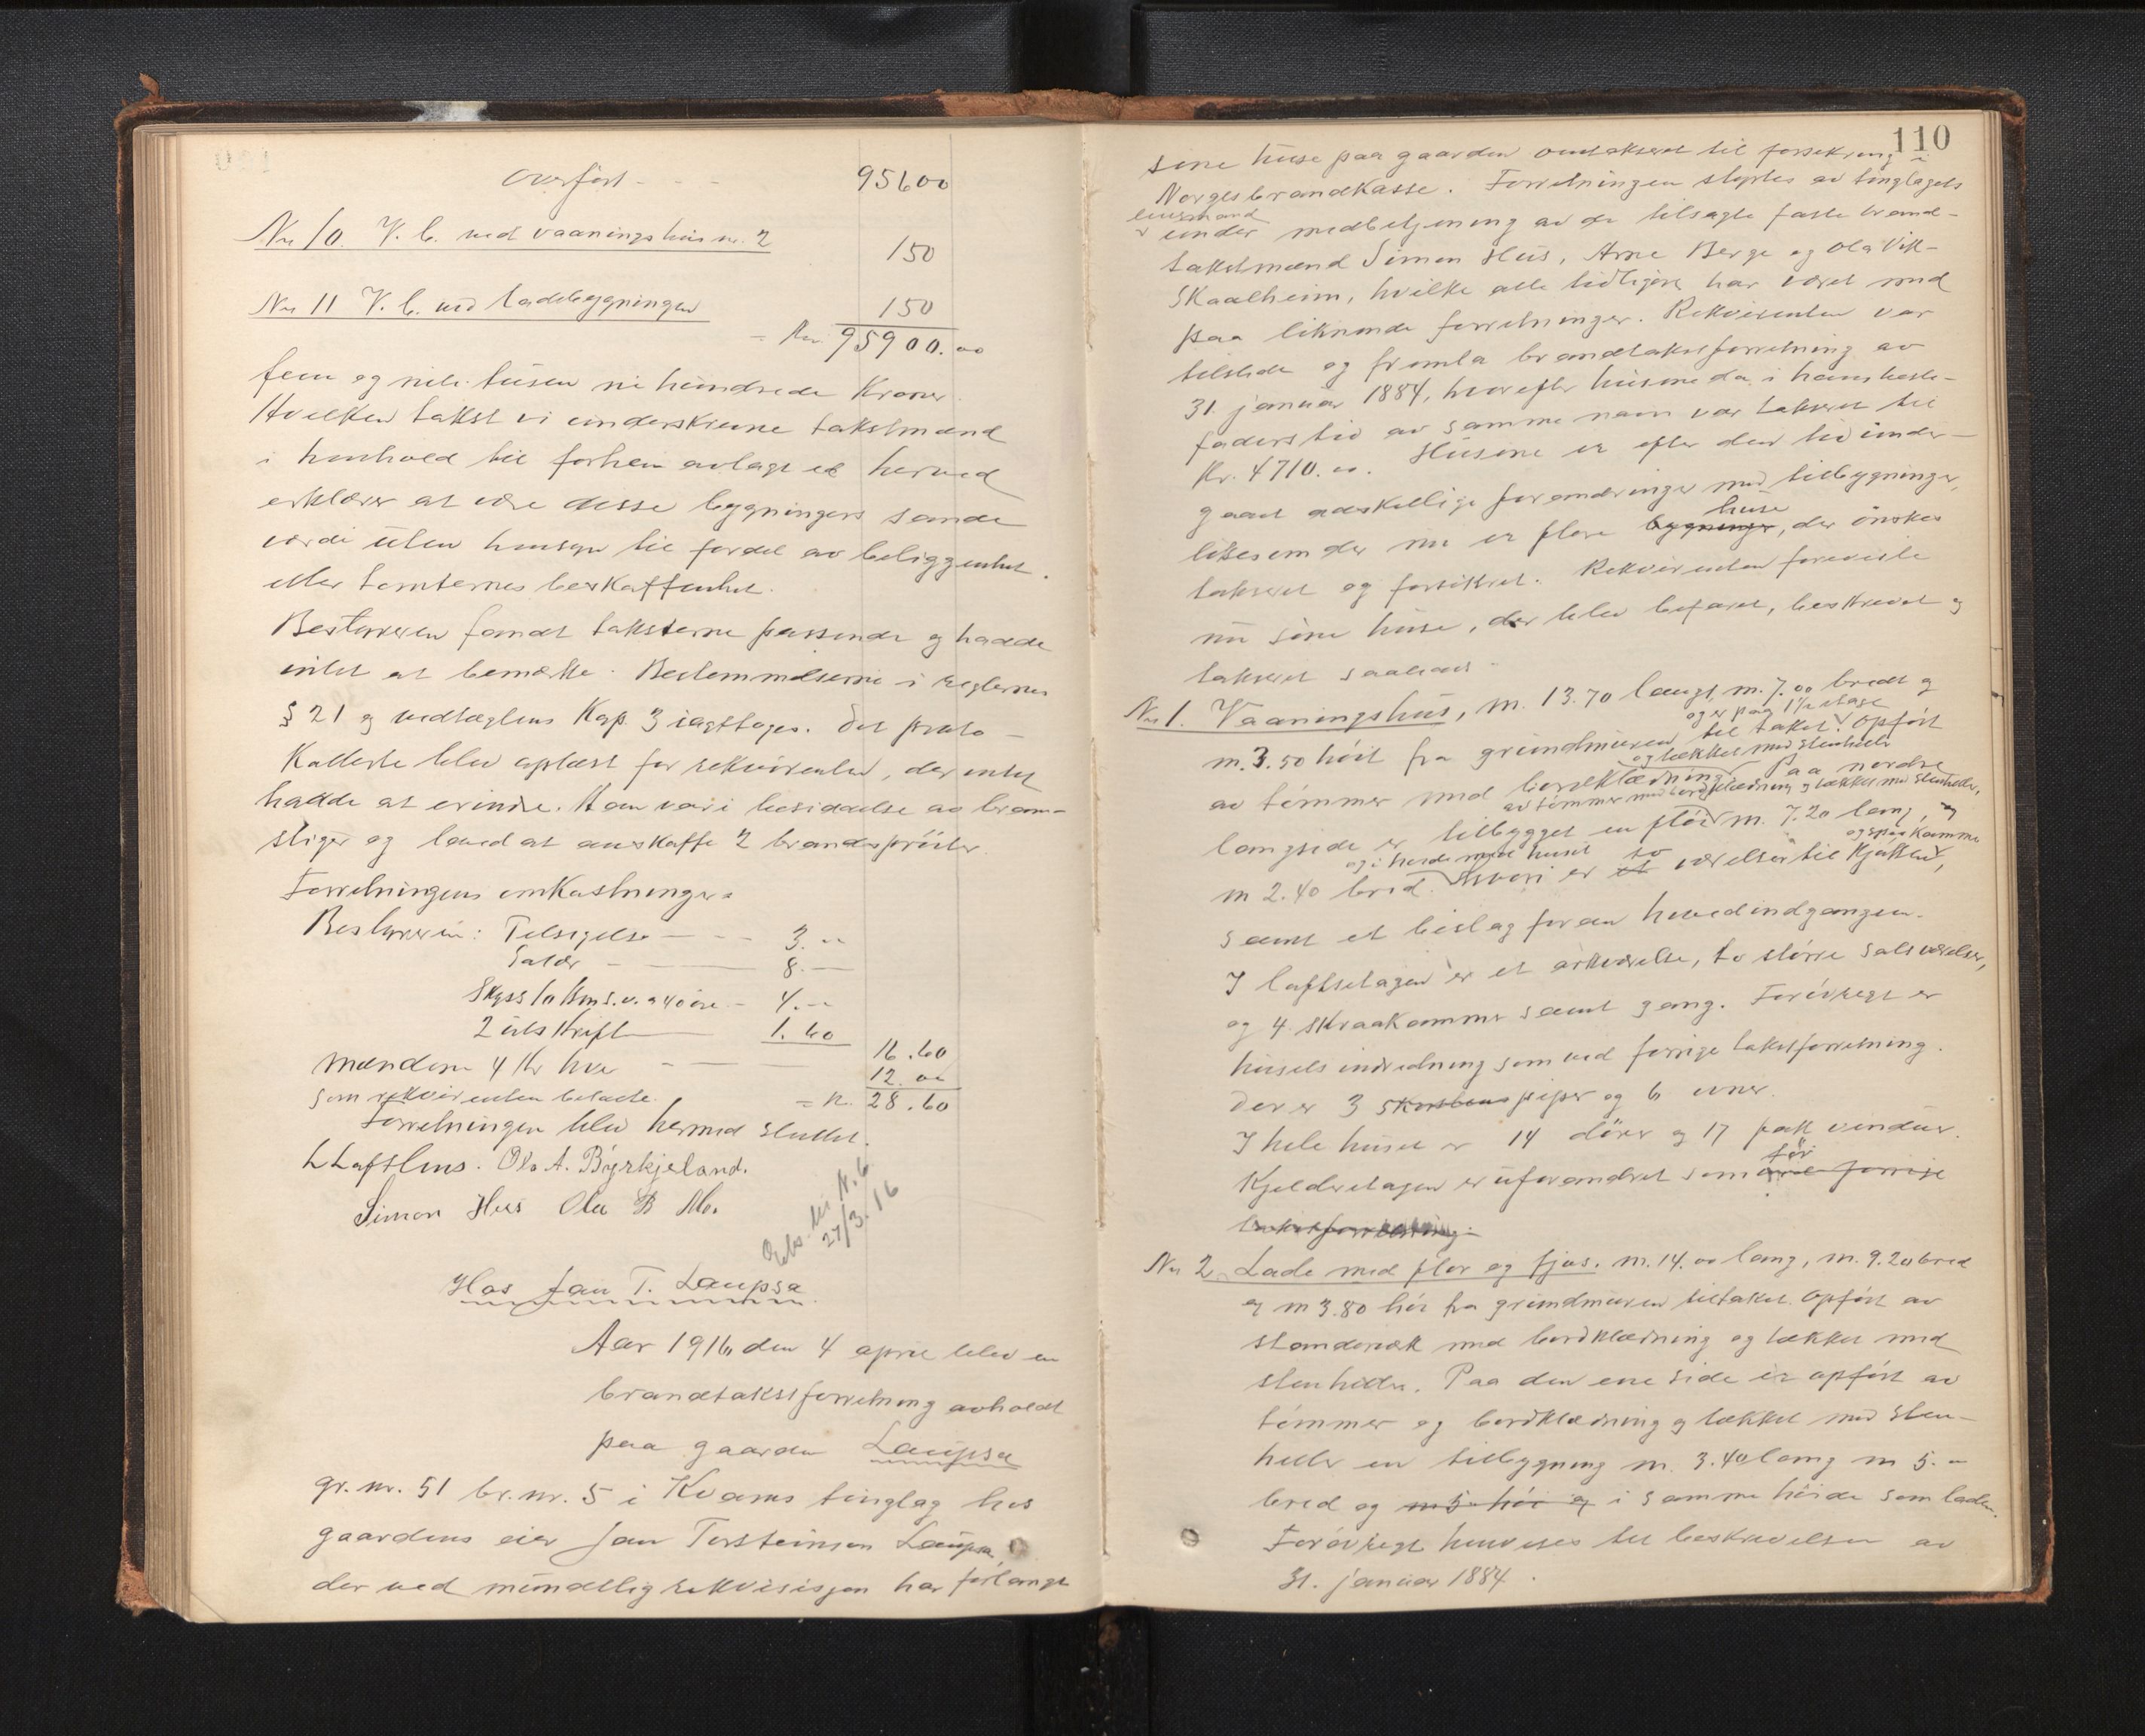 overført - - - 95600
No 10. V. C. ved vaaningshus nr. 2 150
No 11 V. C. ved ladebygningen 150
= Kr. 95900.00
fem og niti tusen ni hundrede Kroner.
Hvilken takst vi underskrevne takstmænd
i henhold til forhen avlagt ed herved
erklærer at være disse bygningers sande
værdi uten hensyn til fordel av beliggenhet
eller tomternes beskaffenhet.
Bestyreren fandt taksterne passende og hadde
intet at bemærke. Bestemmelserne i reglernes
§ 21 og vedtægtens Kap. 3 iagttages. Det proto-
kollerte blev oplæst for rekvirenten, der intet
hadde at erindre. Han var i besiddelse av bran-
stiger og loved at anskaffe 2 brandsprøiter.
Forretningens omkostninger:
Bestyreren: Tilsigelse - - 3.-
Salær - 8.-
Skyss 10 km s.v. a 40 øre - 4.-
2 utskrift 1.60
16.60
Mændene 4 Kr hver - - 12.00
som rekvirenten betalte. = Kr. 28.60
Forretningen blev hermed sluttet.
L Lofthus. Ols A. Byrkjeland.
Simon Hus Ola B Mo.
N. 6
27/3. 16
Hos Jan T. Laupsa
Aar 1916 den 4 april blev en
brandtakstforretning avholdt
paa gaarden Laupsa
gr. nr. 51 br. nr. 5 i Kvams tinglag hos
gaardens eier Jan Torsteinsen Laupsa,
der ved mundtlig rekvisisjon har forlangt
110
sine huse paa gaarden omtaksert til forsekring i
Norges brandkasse. Forretningen styrtes av tinglagets
lensmand
under medbetjening av de tilsagte faste brand-
takstmænd Simon Hus, Arne Berge og Ola Vik-
Skaalheim, hvilke alle tidligere har været med
paa liknende forretninger. Rekvirenten var
tilstede og fremla brandtakstforretning av
31. januar 1884, hvorefter husene da i hans beste-
faders tid av samme navn var taksert til
Kr. 4710.00. Husene er efter den tid under-
gaat adskellige forandringer med tilbygninger,
huse
likesom der nu er flere bygninger, der ønskes
taksert og forsikret. Rekvirenten foreviste
nu sine huse, der blev befaret, beskrevet og
taksert saaledes:
No 1. Vaaningshus, m. 13.70 langt, m. 7.00 bredt og
og er paa 1½ etage
m. 3.50 høit fra grundmuren til taket. Opført
og tækket med stenheller
av tømmer med bordklædning. Paa nordre
av tømmer med bordklædning og tækket med stenheller,
langside er tilbygget en fløi m. 7.20 lang, og
og i høide med huset to og spiskammer
m 2.40 bred. Hvori er et værelser til kjøkken,
samt et bislag foran hovedindgangen.
I loftsetagen er et arkværelse, to større salsværelser,
og 4 skraakammer samt gang. Forøvrigt er
husets indredning som ved forrige takstforretning.
Der er 3 skorstens piper og 6 ovner.
I hele huset er 14 dører og 17 fak vinduer.
før
Kjelderetagen er uforandret som ved forrige
takstforretning.
No 2. Lade med flor og fjøs. m. 14.00 lang, m. 9.20 bred
og m 3.80 høi fra grundmuren til taket. Opført av
standerværk med bordklædning og tækket med
stenheller. Paa den ene side er opført av
tømmer og bordklædning og tækket med sten-
heller en tilbygning m. 3.40 lang m 5.-
bred og m 5 høi og i samme høide som laden.
Forøvrigt henvises til beskrivelsen av
31. januar 1884.